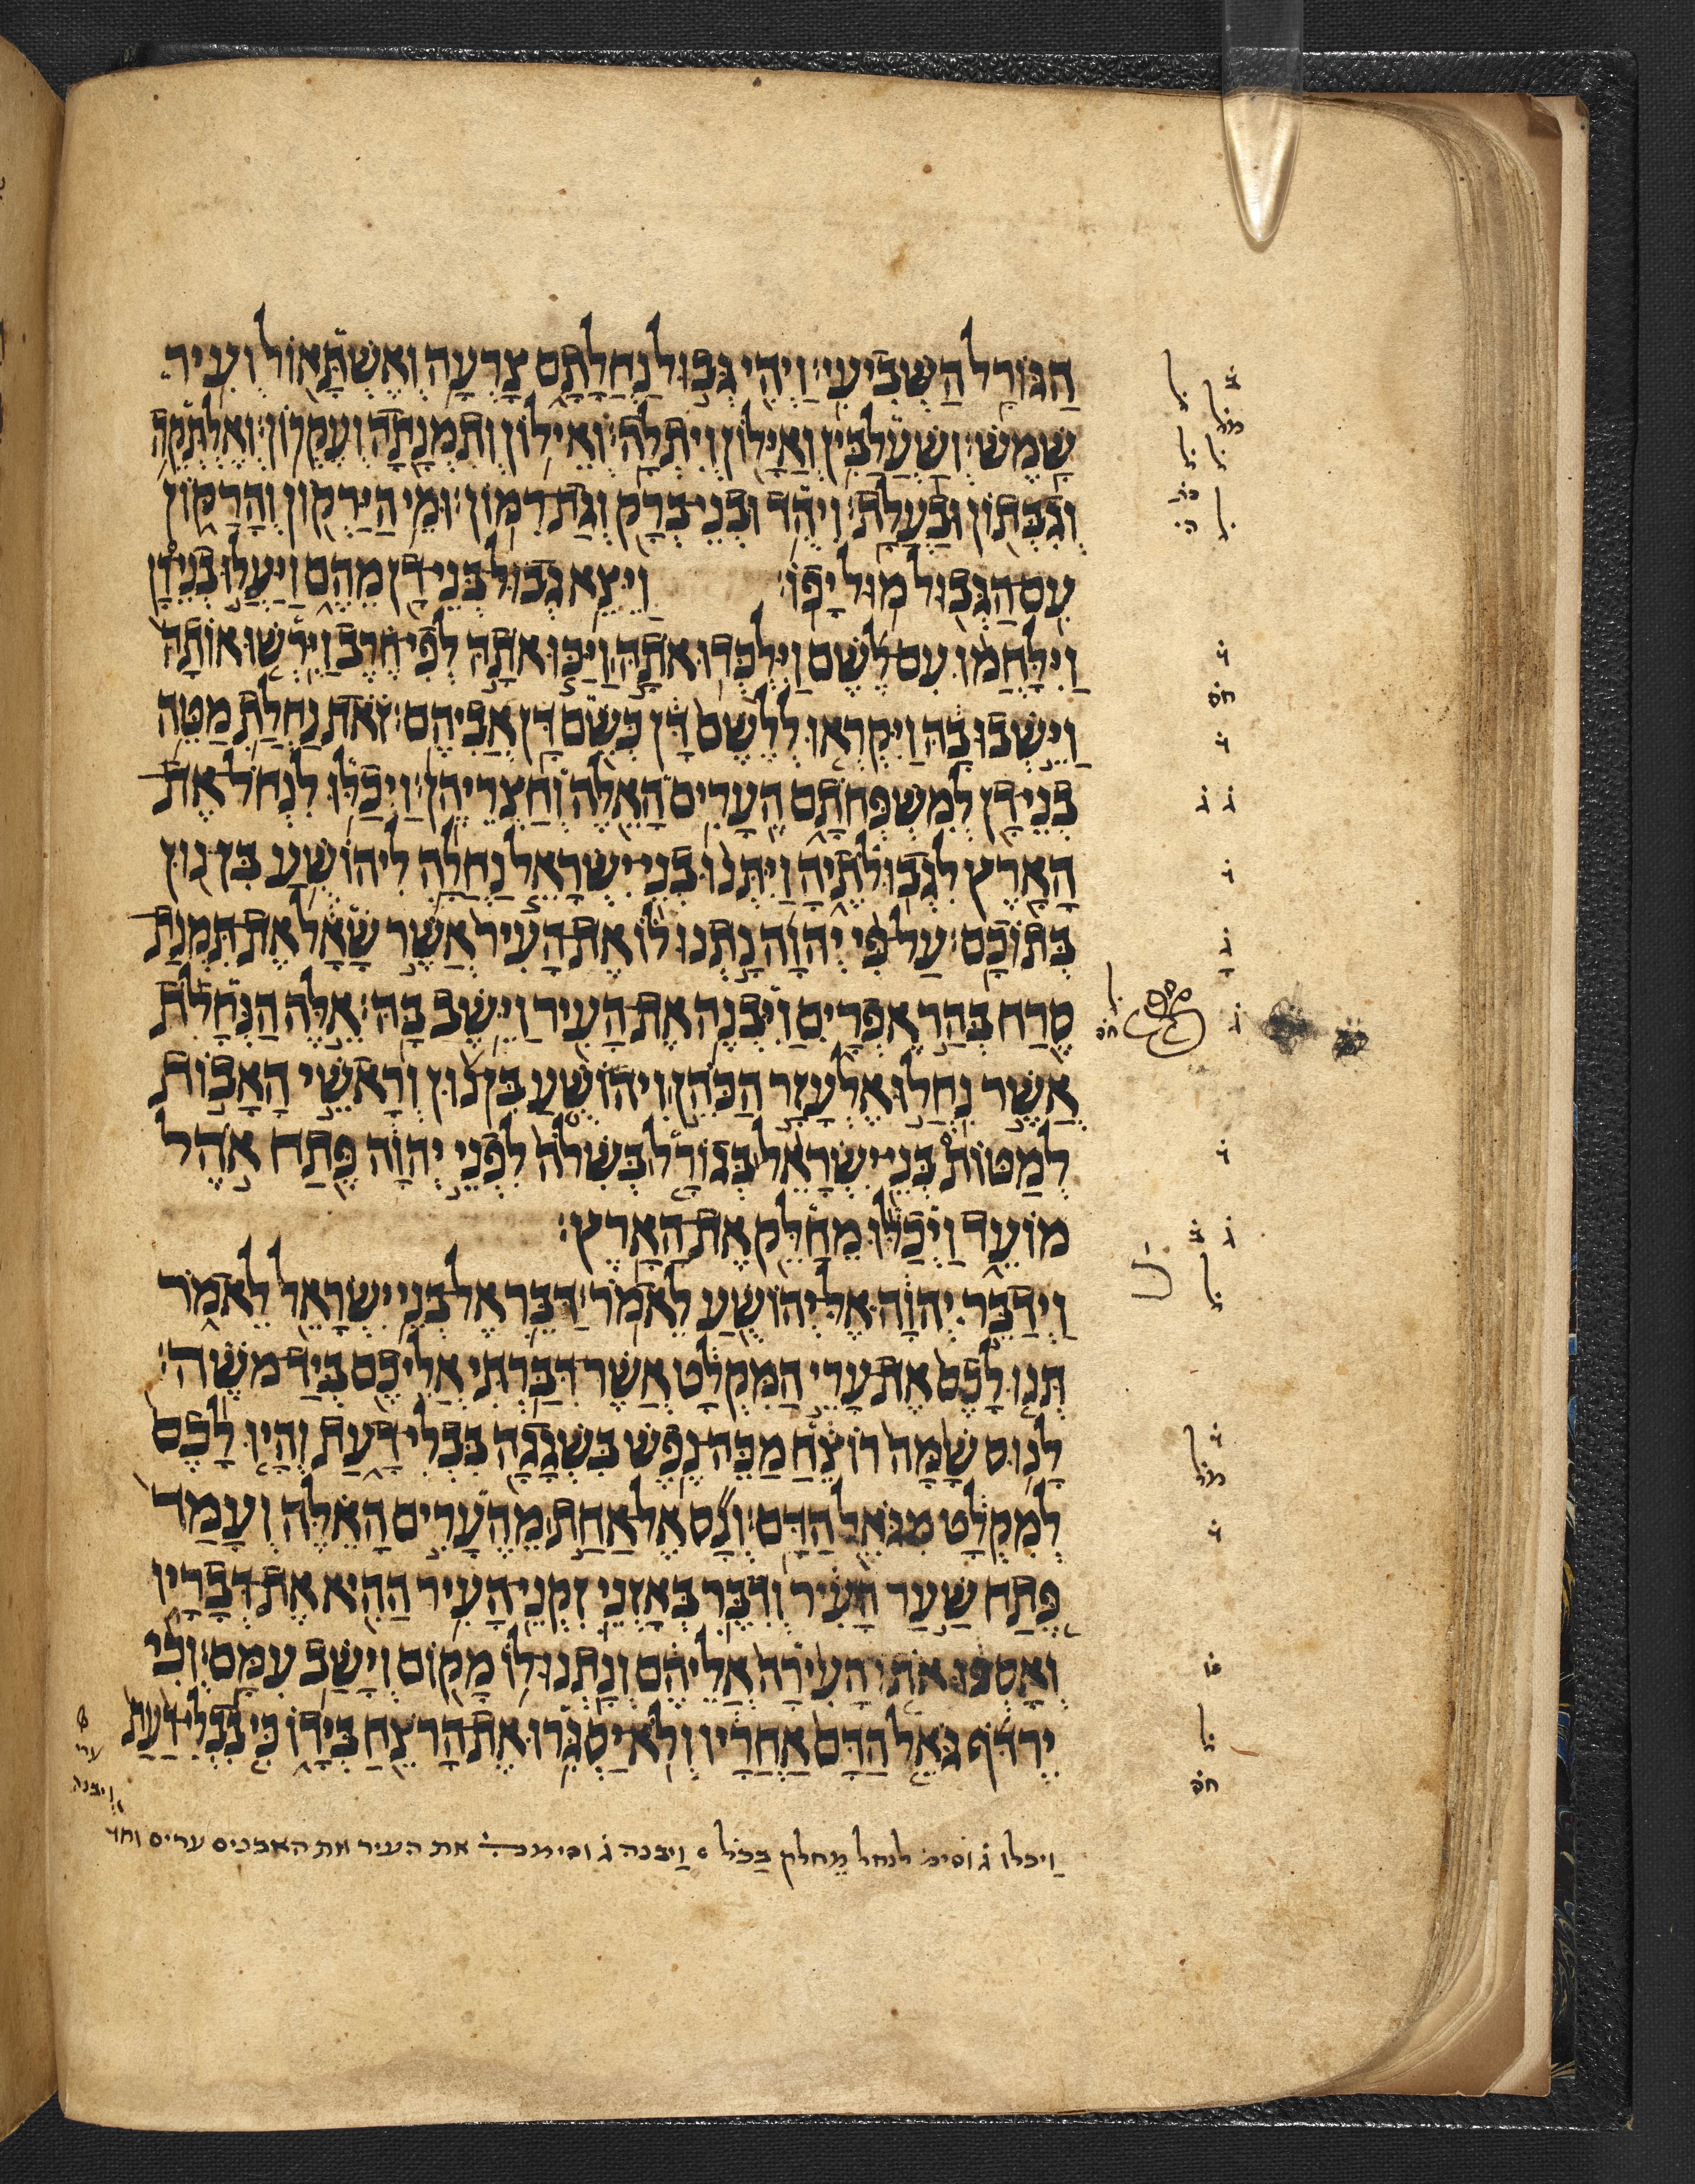 הַגּוֹרָל הַשְּׁבִיעִי׃ וַיְהִי גְּבוּל נַחֲלָתָם צָרְעָה וְאֶשְׁתָּאוֹל וְעִיר
שָׁמֶשׁ׃ וְשַׁעֲלַבִּין וְאַיָּלוֹן וְיִתְלָה׃ וְאֵילוֹן וְתִמְנָתָה וְעֶקְרוֹן׃ וְאֶלְתְּקֵה
וְגִבְּתוֹן וּבַעֲלָת׃ וִיהֻד וּבְנֵי־בְרַק וְגַת־רִמּוֹן׃ וּמֵי הַיַּרְקוֹן וְהָרַקּוֹן
עִם־הַגְּבוּל מוּל יָפוֹ׃ וַיֵּצֵא גְבוּל־בְּנֵי־דָן מֵהֶם וַיַּעֲלוּ בְנֵי־דָן
וַיִּלָּחֲמוּ עִם־לֶשֶׁם וַיִּלְכְּדוּ אֹתָהּ וַיַּכּוּ אֹתָהּ לְפִי־חֶרֶב וַיִּרְשׁוּ אוֹתָהּ
וַיֵּשְׁבוּ בָהּ וַיִּקְרְאוּ לְלֶשֶׁם דָּן כְּשֵׁם דָּן אֲבִיהֶם׃ זֹאת נַחֲלַת מַטֵּה
בְנֵי־דָן לְמִשְׁפְּחֹתָם הֶעָרִים הָאֵלֶּה וְחַצְרֵיהֶן׃ וַיְכַלּוּ לִנְחֹל־אֶת
הָאָרֶץ לִגְבוּלֹתֶיהָ וַיִּתְּנוּ בְנֵי־יִשְׂרָאֵל נַחֲלָה לִיהוֹשֻׁעַ בִּן־נוּן
בְּתוֹכָם׃ עַל־פִּי יְהוָה נָתְנוּ לוֹ אֶת־הָעִיר אֲשֶׁר שָׁאָל אֶת־תִּמְנַת
סֶרַח בְּהַר אֶפְרָיִם וַיִּבְנֶה אֶת־הָעִיר וַיֵּשֶׁב בָּהּ׃ אֵלֶּה הַנְּחָלֹת
אֲשֶׁר נִחֲלוּ אֶלְעָזָר הַכֹּהֵן וִיהוֹשֻׁעַ בִּן־נוּן וְרָאשֵׁי הָאָבוֹת
לְמַטּוֹת בְּנֵי־יִשְׂרָאֵל בְּגוֹרָל בְּשִׁלֹה לִפְנֵי יְהוָה פֶּתַח אֹהֶל
מוֹעֵד וַיְכַלּוּ מֵחַלֵּק אֶת־הָאָרֶץ׃
וַיְדַבֵּר יְהוָה אֶל־יְהוֹשֻׁעַ לֵאמֹר׃ דַּבֵּר אֶל־בְּנֵי יִשְׂרָאֵל לֵאמֹר
תְּנוּ לָכֶם אֶת־עָרֵי הַמִּקְלָט אֲשֶׁר־דִּבַּרְתִּי אֲלֵיכֶם בְּיַד־מֹשֶׁה׃
לָנוּס שָׁמָּה רוֹצֵחַ מַכֵּה־נֶפֶשׁ בִּשְׁגָגָה בִּבְלִי־דָעַת וְהָיוּ לָכֶם
לְמִקְלָט מִגֹּאֵל הַדָּם׃ וְנָס אֶל־אַחַת מֵהֶעָרִים הָאֵלֶּה וְעָמַד
פֶּתַח שַׁעַר הָעִיר וְדִבֶּר בְּאָזְנֵי זִקְנֵי־הָעִיר הַהִיא אֶת־דְּבָרָיו
וְאָסְפוּ אֹתוֹ הָעִירָה אֲלֵיהֶם וְנָתְנוּ־לוֹ מָקוֹם וְיָשַׁב עִמָּם׃ וְכִי
יִרְדֹּף גֹּאֵל הַדָּם אַחֲרָיו וְלֹא־יַסְגִּרוּ אֶת־הָרֹצֵחַ בְּיָדוֹ כִּי בִבְלִי־דַעַת
ערי
ויבנה
וַיכלו גׄ וסימ לנחל מֵחלק בַכל ׃ וַיבנה גׄ וסימנה את העיר את האבנים ערים וחד